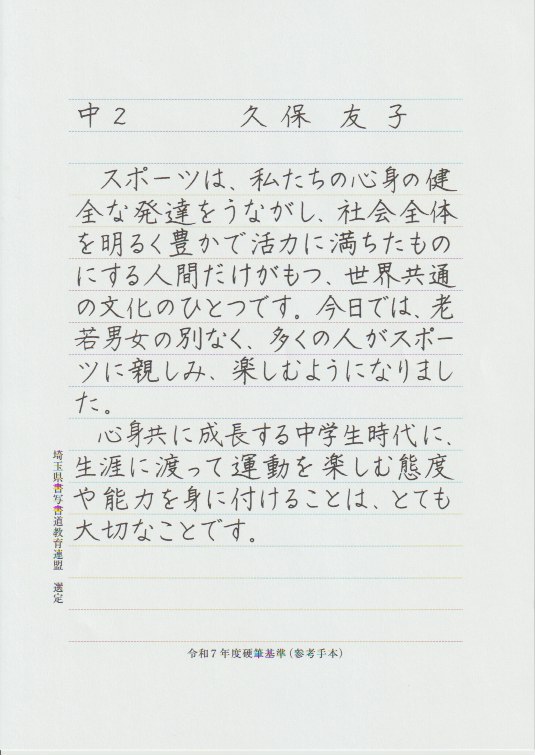 中2 久保 友子
スポーツは、私たちの心身の健
全な発達をうながし、社会全体
を明るく豊かで活力に満ちたもの
にする人間だけがもつ、世界共通
の文化のひとつです。今日では、老
若男女の別なく、多くの人がスポー
ツに親しみ、楽しむようになりまし
た。
心身共に成長する中学生時代に、
生涯に渡って運動を楽しむ態度
や能力を身に付けることは、とても
大切なことです。
埼玉県書写書道教育連盟 選定
令和7年度硬筆基準(参考手本)